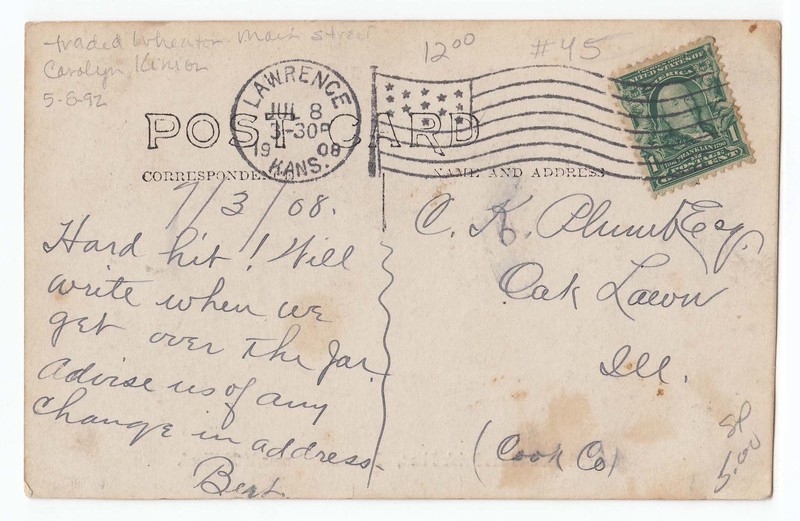 traded Wheaton Main Street
Carolyn
5-8-92
12⁰⁰
#45
POST CARD
LAWRENCE
JUL 8
3-30P
1908
KANS.
UNITED STATES OF AMERICA
FRANKLIN
POSTAGE
1 CENT 1
CORRESPONDENCE
NAME AND ADDRESS
7/3/08.
Hard hit! Will
write when we
get over the jar.
Advise us of any
change in address.
Bert
C. K. Plumb Esq.
Oak Lawn
Ill.
(Cook Co)
5.00